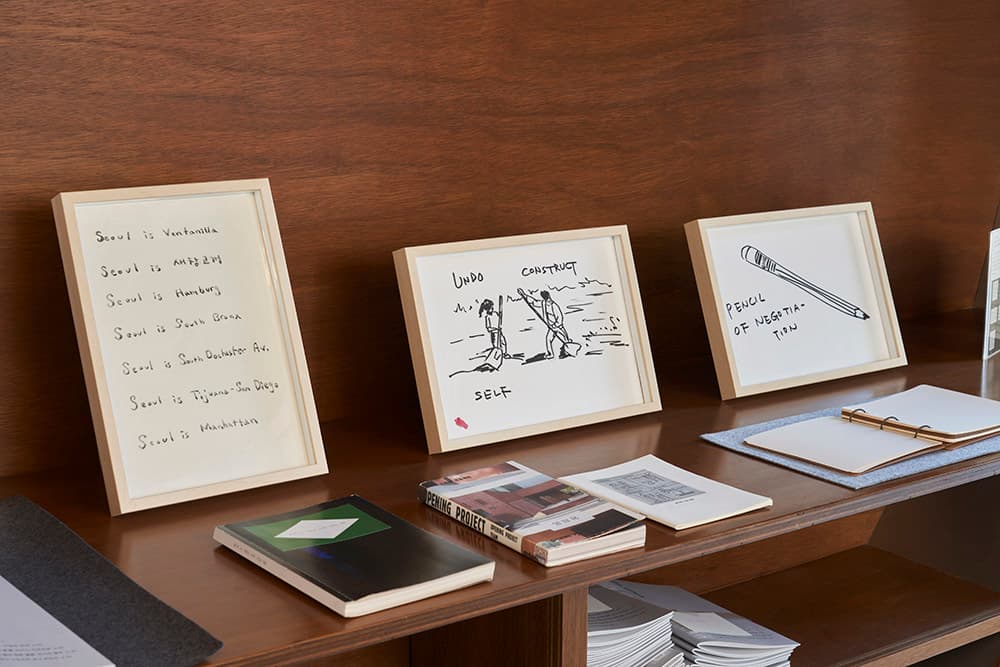 Seoul is Ventanilla
Seoul is
Seoul is Hamburg
Seoul is South Bronx
Seoul is South Dochester Av.
Seoul is Tijuana-San Diego
Seoul is Manhattan
UNDO CONSTRUCT
SELF
PENCIL
OF NEGOTIA-
TION
PENING PROJECT
OPENING PROJECT